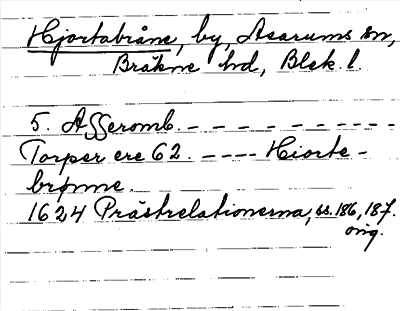 Hjortabråne, by, Asarums sn,
Bräkne hd, Blek. l.
5. Asseromb. – – – – – – – – – –
Torper ere 62. – – – – Hiorte-
brønne.
1624 Prästrelationerna, ss. 186, 187.
orig.